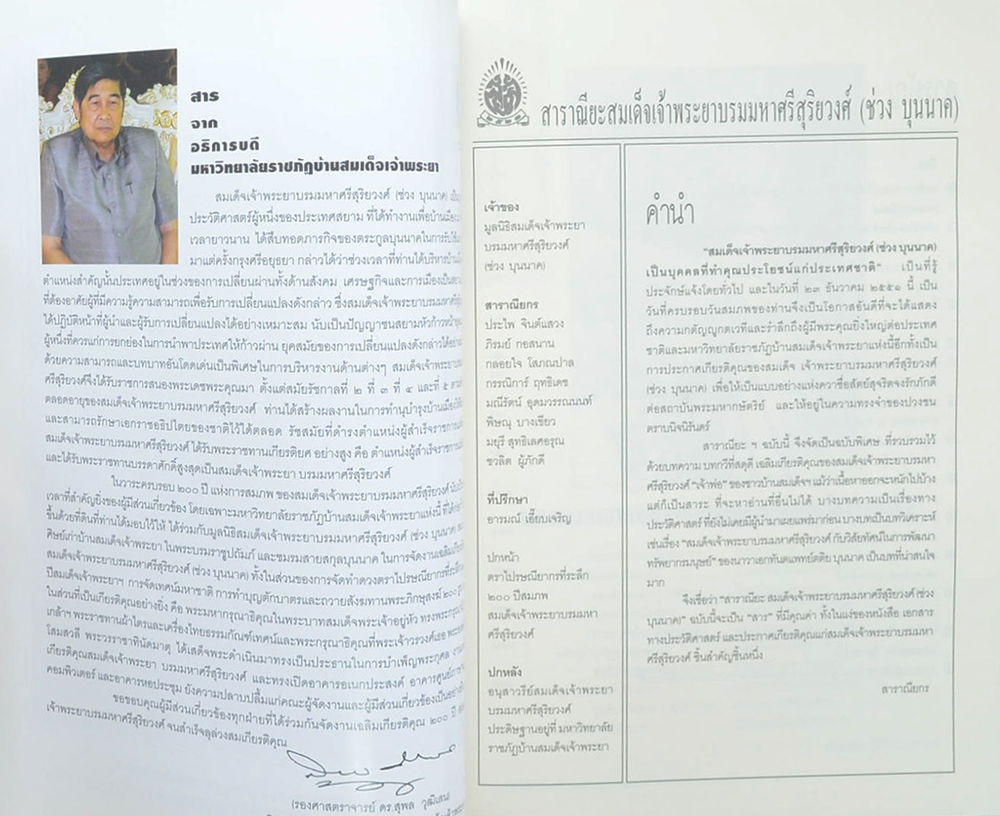 สาร
จาก
อธิการบดี
มหาวิทยาลัยราชภัฏบ้านสมเด็จเจ้าพระยา
สมเด็จเจ้าพระยาบรมมหาศรีสุริยวงศ์ (ช่วง บุนนาค)
ประวัติศาสตร์ผู้หนึ่งของประเทศสยาม ที่ได้ทำงานเพื่อบ้านเมือง
เวลายาวนาน ได้สืบทอดภารกิจของตระกูลบุนนาคในการรับใช้
มาแต่ครั้งกรุงศรีอยุธยา กล่าวได้ว่าช่วงเวลาที่ท่านได้บริหารบ้านเมือง
ตำแหน่งสำคัญนั้นประเทศอยู่ในช่วงของการเปลี่ยนผ่านทั้งด้านสังคม เศรษฐกิจและการเมือง
ที่ต้องอาศัยผู้ที่มีความรู้ความสามารถเพื่อรับการเปลี่ยนแปลงดังกล่าว ซึ่งสมเด็จเจ้าพระยาบรมมหาศรี
ได้ปฏิบัติหน้าที่ผู้นำและผู้รับการเปลี่ยนแปลงได้อย่างเหมาะสม นับเป็นปัญญาชนสยามหัวก้าวหน้า
ผู้หนึ่งที่ควรแก่การยกย่องในการนำพาประเทศให้ก้าวผ่าน ยุคสมัยของการเปลี่ยนแปลงดังกล่าวได้
ด้วยความสามารถและบทบาทอันโดดเด่นเป็นพิเศษในการบริหารงานด้านต่างๆ สมเด็จเจ้าพระยาบรม
ศรีสุริยวงศ์จึงได้รับราชการสนองพระเดชพระคุณมา ตั้งแต่สมัยรัชกาลที่ ๒ ที่ ๓ ที่ ๔ และที่ ๕
ตลอดอายุของสมเด็จเจ้าพระยาบรมมหาศรีสุริยวงศ์ ท่านได้สร้างผลงานในการทำนุบำรุงบ้านเมือง
และสามารถรักษาเอกราชอธิปไตยของชาติไว้ได้ตลอด รัชสมัยที่ดำรงตำแหน่งผู้สำเร็จราชการ
สมเด็จเจ้าพระยาบรมมหาศรีสุริยวงศ์ ได้รับพระราชทานเกียรติยศ อย่างสูง คือ ตำแหน่งผู้สำเร็จราชการ
และได้รับพระราชทานบรรดาศักดิ์สูงสุดเป็นสมเด็จเจ้าพระยา บรมมหาศรีสุริยวงศ์
ในวาระครบรอบ ๒๐๐ ปี แห่งการสมภพ ของสมเด็จเจ้าพระยาบรมมหาศรีสุริยวงศ์
เวลาที่สำคัญยิ่งของผู้มีส่วนเกี่ยวข้อง โดยเฉพาะมหาวิทยาลัยราชภัฏบ้านสมเด็จเจ้าพระยาแห่งนี้
ขึ้นด้วยที่ดินที่ท่านได้มอบไว้ให้ ได้ร่วมกับมูลนิธิสมเด็จเจ้าพระยาบรมมหาศรีสุริยวงศ์ (ช่วง บุนนาค)
ศิษย์เก่าบ้านสมเด็จเจ้าพระยา ในพระบรมราชูปถัมภ์ และชมรมสายสกุลบุนนาค ในการจัดงานเฉลิมเกียรติ
สมเด็จเจ้าพระยาบรมมหาศรีสุริยวงศ์ (ช่วง บุนนาค) ทั้งในส่วนของการจัดทำดวงตราไปรษณียากรที่ระลึก
ปีสมเด็จเจ้าพระยาฯ การจัดเทศน์มหาชาติ การทำบุญตักบาตรและถวายสังฆทานพระภิกษุสงฆ์ ๒๐๐
ในส่วนที่เป็นเกียรติคุณอย่างยิ่ง คือ พระมหากรุณาธิคุณในพระบาทสมเด็จพระเจ้าอยู่หัว
เกล้าฯ พระราชทานผ้าไตรและเครื่องไทยธรรมกัณฑ์เทศน์และพระกรุณาธิคุณที่พระเจ้าวรวงศ์เธอ
โสมสวลี พระวรราชาทินัดดามาตุ ได้เสด็จพระดำเนินมาทรงเป็นประธานในการบำเพ็ญพระกุศล
เกียรติคุณสมเด็จเจ้าพระยา บรมมหาศรีสุริยวงศ์ และทรงเปิดอาคารอเนกประสงค์ อาคารศูนย์
คอมพิวเตอร์ และอาคารหอประชุม ยังความปลาบปลื้มแก่คณะผู้จัดงานและผู้มีส่วนเกี่ยวข้องเป็นอย่างยิ่ง
ขอขอบคุณผู้มีส่วนเกี่ยวข้องทุกฝ่ายที่ได้ร่วมกันจัดงานเฉลิมเกียรติคุณ ๒๐๐ ปี
เจ้าพระยาบรมมหาศรีสุริยวงศ์ จนสำเร็จลุล่วงสมเกียรติคุณ
(รองศาสตราจารย์ ดร.สุพล วุฒิเสน)
สาราณียะสมเด็จเจ้าพระยาบรมมหาศรีสุริยวงศ์ (ช่วง บุนนาค)
เจ้าของ
มูลนิธิสมเด็จเจ้าพระยา
บรมมหาศรีสุริยวงศ์
(ช่วง บุนนาค)
สาราณียกร
ประไพ จินต์แสวง
ภิรมย์ กอสนาน
กลอยใจ โสภณปาล
กรรณิการ์ ฤทธิเดช
มณีรัตน์ อุดมวรรณนนท์
พิษณุ บางเขียว
มยุรี สุทธิเลศอรุณ
ชวลิต ผู้ภักดี
ที่ปรึกษา
อารมณ์ เอี๊ยบเจริญ
ปกหน้า
ตราไปรษณียากรที่ระลึก
๒๐๐ ปีสมภพ
สมเด็จเจ้าพระยาบรมมหา
ศรีสุริยวงศ์
ปกหลัง
อนุสาวรีย์สมเด็จเจ้าพระยา
บรมมหาศรีสุริยวงศ์
ประดิษฐานอยู่ที่ มหาวิทยาลัย
ราชภัฏบ้านสมเด็จเจ้าพระยา
คำนำ
"สมเด็จเจ้าพระยาบรมมหาศรีสุริยวงศ์ (ช่วง บุนนาค)
เป็นบุคคลที่ทำคุณประโยชน์แก่ประเทศชาติ" เป็นที่รู้
ประจักษ์แจ้งโดยทั่วไป และในวันที่ ๒๓ ธันวาคม ๒๕๕๑ นี้ เป็น
วันที่ครบรอบวันสมภพของท่านจึงเป็นโอกาสอันดีที่จะได้แสดง
ถึงความกตัญญูกตเวทีและรำลึกถึงผู้มีพระคุณยิ่งใหญ่ต่อประเทศ
ชาติและมหาวิทยาลัยราชภัฏบ้านสมเด็จเจ้าพระยาแห่งนี้อีกทั้งเป็น
การประกาศเกียรติคุณของสมเด็จ เจ้าพระยาบรมมหาศรีสุริยวงศ์
(ช่วง บุนนาค) เพื่อให้เป็นแบบอย่างแห่งความซื่อสัตย์สุจริตจงรักภักดี
ต่อสถาบันพระมหากษัตริย์ และให้อยู่ในความทรงจำของปวงชน
ตราบนิจนิรันดร์
สาราณียะ ฯ ฉบับนี้ จึงจัดเป็นฉบับพิเศษ ที่รวบรวมไว้
ด้วยบทความ บทกวีที่สดุดี เฉลิมเกียรติคุณของสมเด็จเจ้าพระยาบรมมหา
ศรีสุริยวงศ์ "เจ้าพ่อ" ของชาวบ้านสมเด็จฯ แม้ว่าเนื้อหาออกจะหนักไปบ้าง
แต่ก็เป็นสาระ ที่จะหาอ่านที่อื่นไม่ได้ บางบทความเป็นเรื่องทาง
ประวัติศาสตร์ ที่ยังไม่เคยมีผู้นำมาเผยแพร่มาก่อน บางบทเป็นบทวิเคราะห์
เช่นเรื่อง "สมเด็จเจ้าพระยาบรมมหาศรีสุริยวงศ์ กับวิสัยทัศน์ในการพัฒนา
ทรัพยากรมนุษย์" ของนาวาเอกทันตแพทย์ดิตถิย บุนนาค เป็นบทที่น่าสนใจ
มาก
จึงเชื่อว่า "สาราณียะ สมเด็จเจ้าพระยาบรมมหาศรีสุริยวงศ์ (ช่วง
บุนนาค)" ฉบับนี้จะเป็น "สาร" ที่มีคุณค่า ทั้งในแง่ของหนังสือ เอกสาร
ทางประวัติศาสตร์ และประกาศเกียรติคุณแก่สมเด็จเจ้าพระยาบรมมหา
ศรีสุริยวงศ์ ชิ้นสำคัญชิ้นหนึ่ง
สาราณียกร